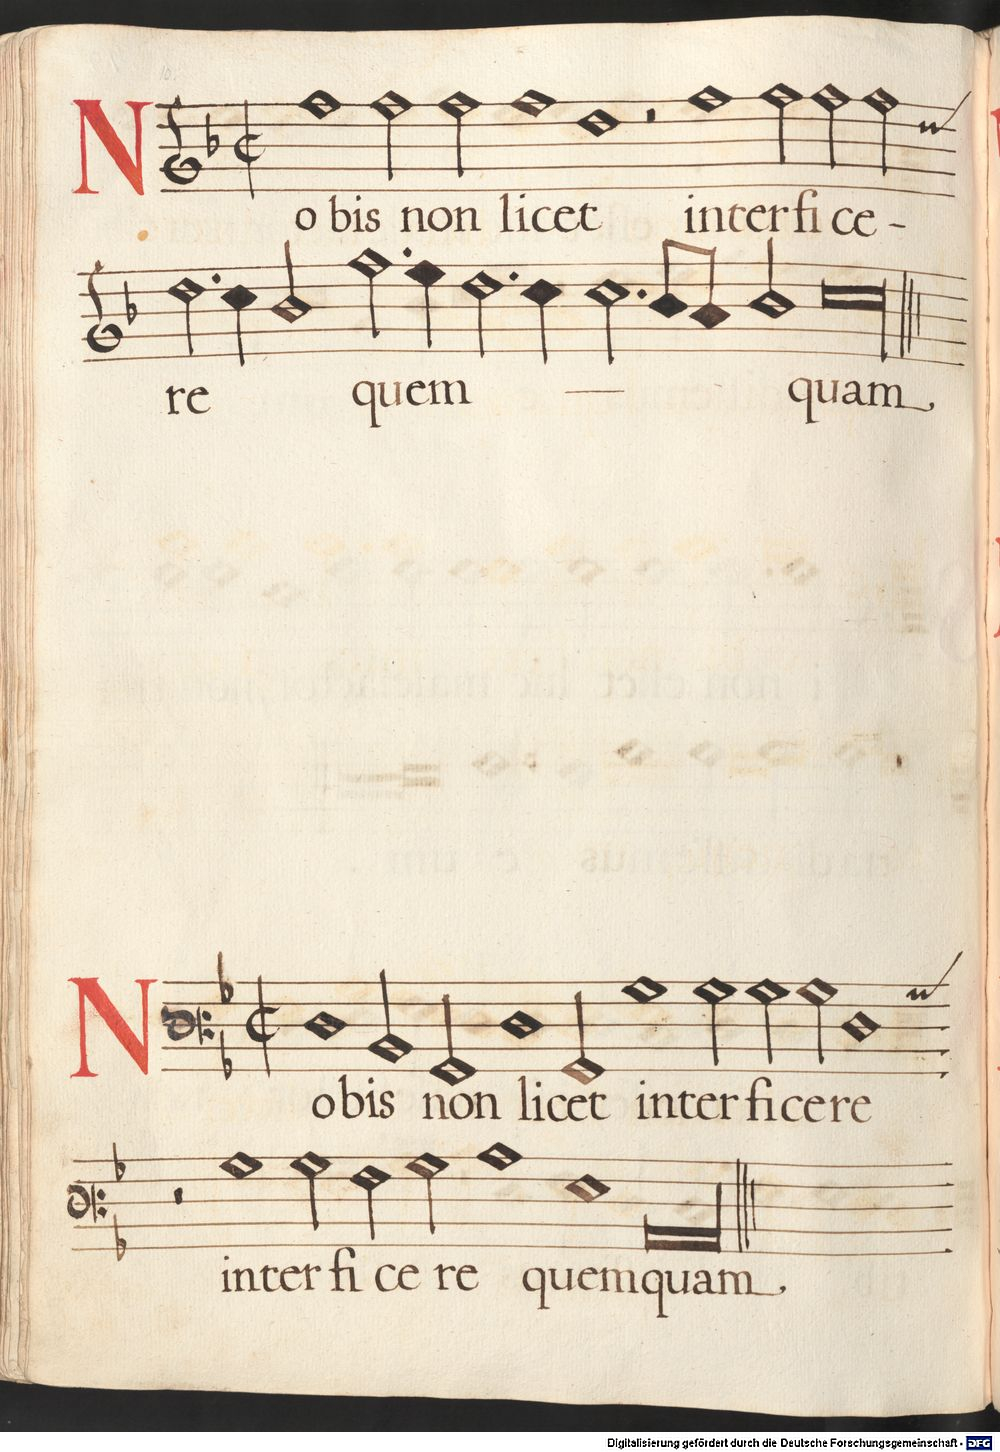 10.
Nobis non licet interfice-
re quem — quam,
Nobis non licet interficere
interficere quemquam,
Digitalisierung gefördert durch die Deutsche Forschungsgemeinschaft - DFG